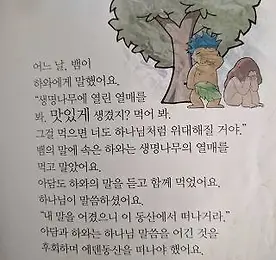 어느 날, 뱀이
하와에게 말했어요.
“생명나무에 열린 열매를
봐. 맛있게 생겼지? 먹어 봐.
그걸 먹으면 너도 하나님처럼 위대해질 거야.”
뱀의 말에 속은 하와는 생명나무의 열매를
먹고 말았어요.
아담도 하와의 말을 듣고 함께 먹었어요.
하나님이 말씀하셨어요.
“내 말을 어겼으니 이 동산에서 떠나거라.”
아담과 하와는 하나님 말씀을 어긴 것을
후회하며 에덴동산을 떠나야 했어요.